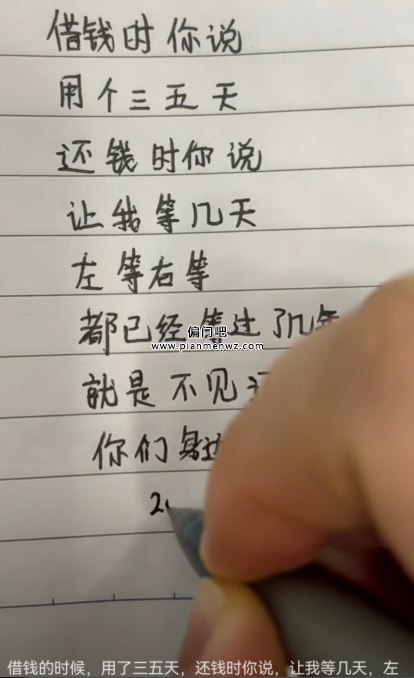 借钱时你说
用个三五天
还钱时你说
让我等几天
左等右等
都已经等过了几年
偏门吧
www.pianmenwz.com
就是不见
你们
2
借钱的时候，用了三五天，还钱时你说，让我等几天，左